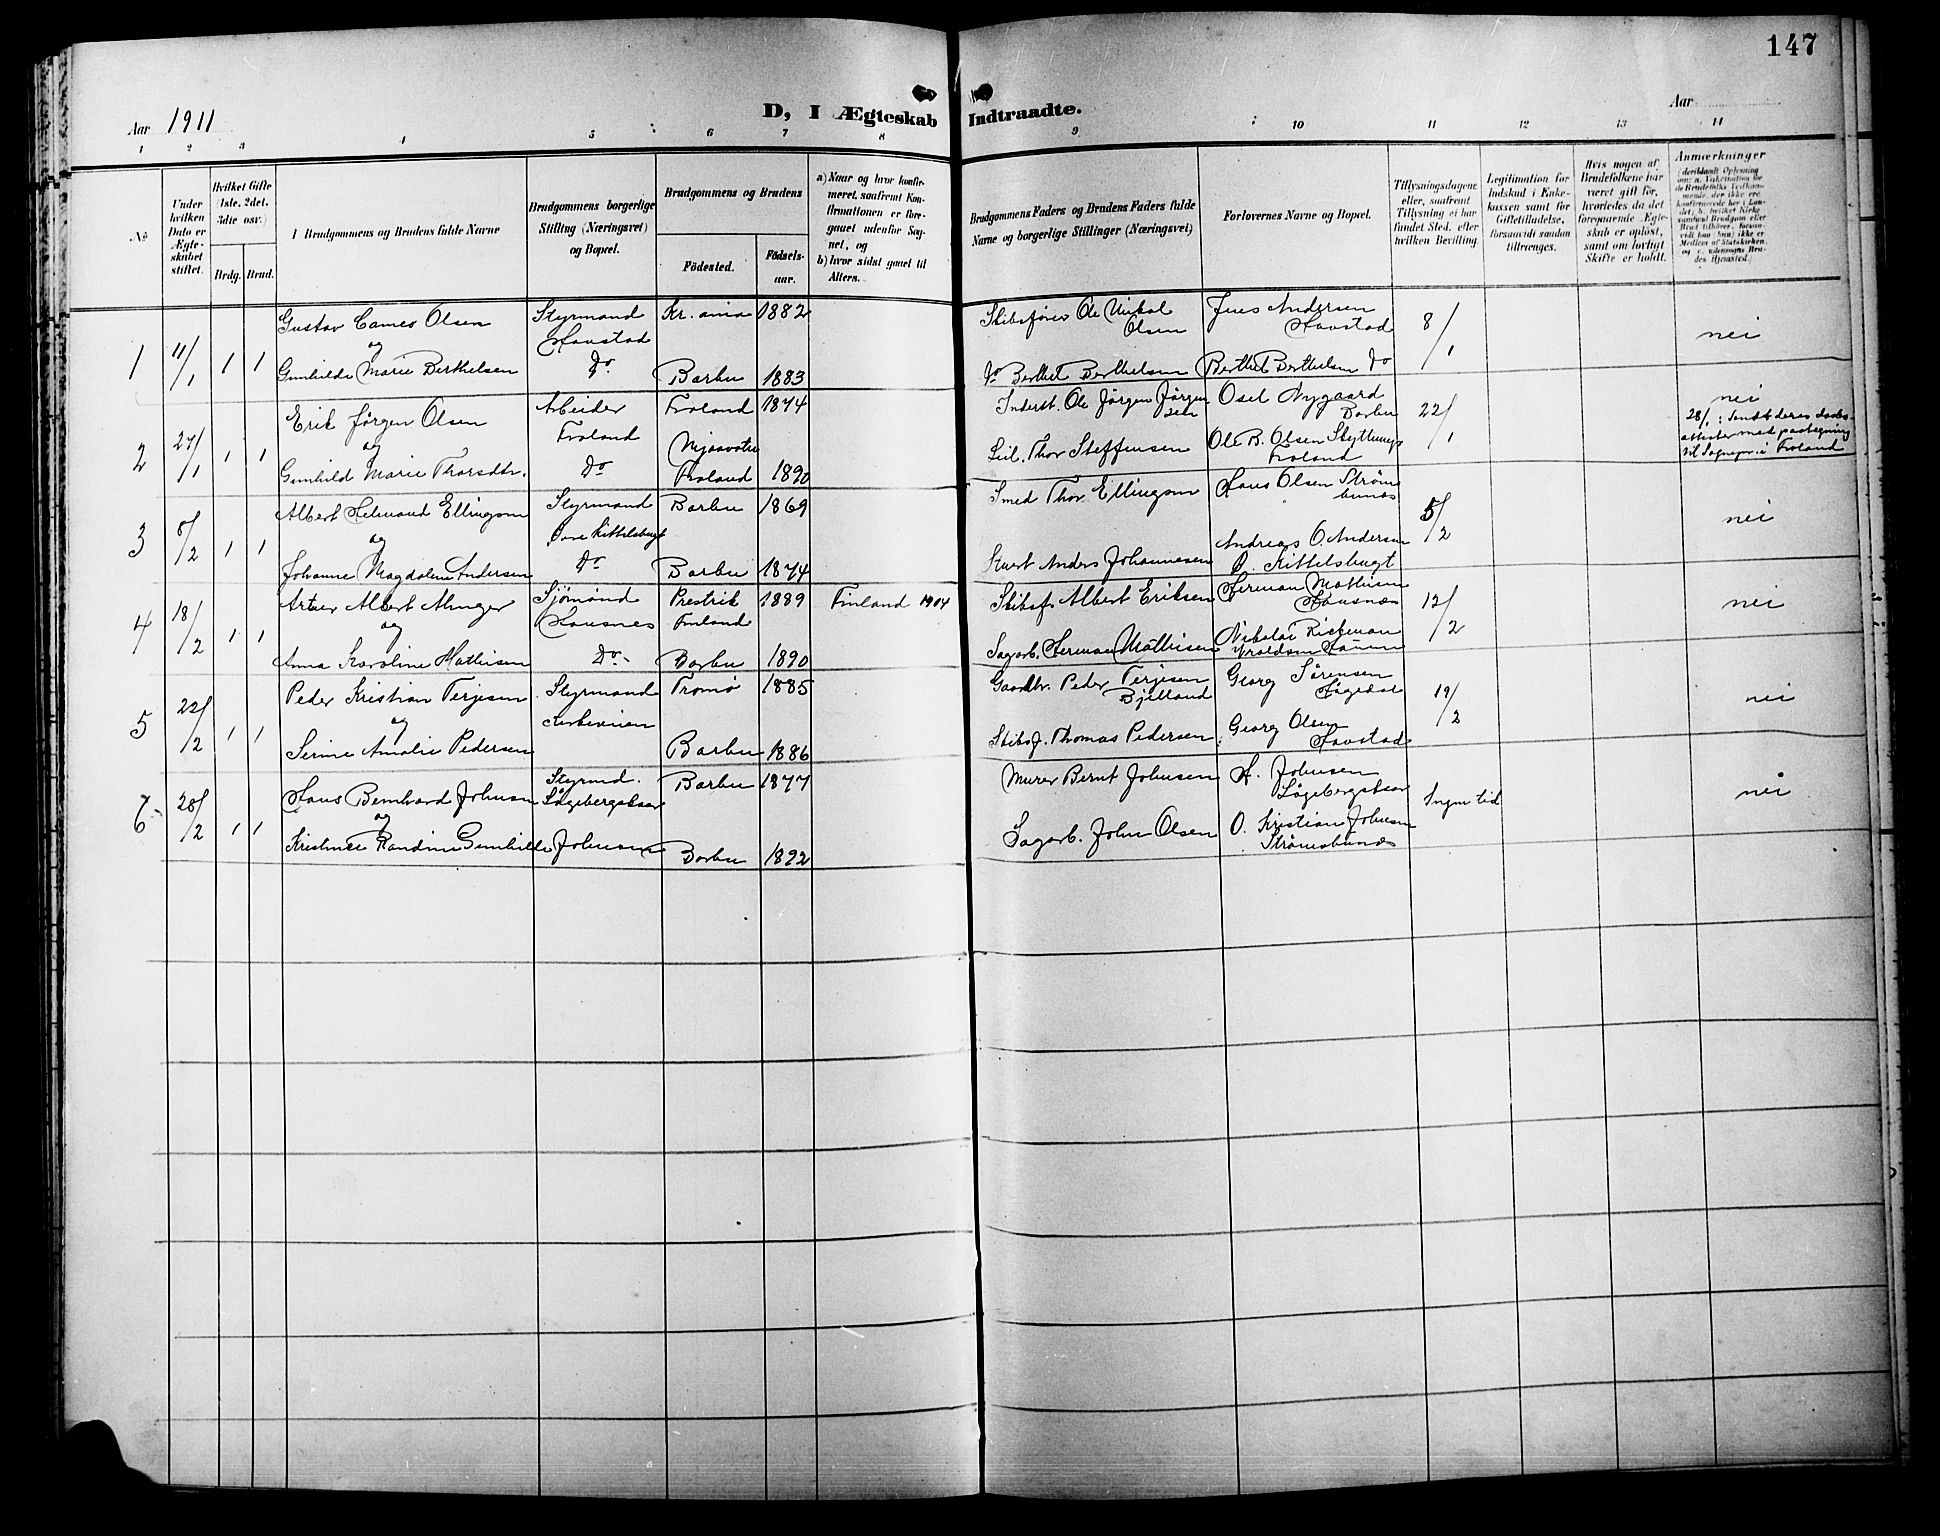 147
Aar 1911
D, I Ægteskab Indtraadte.
Aar
1 2 3 4 5 6 7 8 9 10 11 12 13 14
No
Under hvilken Dato er Ægteskabet stiftet.
Hvilket Gifte (1ste, 2det, 3die osv.)
Brdg. Brud.
Brudgommens og Brudens fulde Navne
Brudgommens borgerlige Stilling (Næringsvei) og Bopæl.
Brudgommens og Brudens
Födested.
Födsels-aar.
a) Naar og hvor konfirmeret, saafremt Konfirmationen er foregaaet udenfor Sognet, og
b) hvor sidst gaaet til Alters.
Brudgommens Faders og Brudens Faders fulde Navne og borgerlige Stillinger (Næringsvei)
Forlovernes Navne og Bopæl.
Tillysningsdagene eller, saafremt Tillysning ei har fundet Sted, efter hvilken Bevilling.
Legitimation for Indskud i Enkekassen samt for Giftetilladelse, forsaavidt saadan tiltrænges.
Hvis nogen af Brudefolkene har været gift för, hvorledes da det foregaaende Ægteskab er oplöst, samt om lovligt Skifte er holdt.
Anmærkninger
1 11/1 1 1
Gustav Olsen
og
Gunhilde Marie Berthelsen
Styrmand
Havstad
Do
Kr.ania 1882
Barbu 1883
Skibsfører Ole Olsen
Do Berthel Berthelsen
Jens Andersen
Havstad
Berthel Berthelsen Do
8/1
nei
2 27/1 1 1
Erik Jørgen Olsen
og
Gunhild Marie Thorsdtr.
Arbeider
Froland
Do
Froland 1874
Froland 1890
Inderst. Ole Jørgen Jørgensen
Thor Steffensen
Osel Nygaard
Barbu
Ole B. Olsen
Froland
22/1
nei
28/1: Sendt deres
attester med paategning
til Sognepr. i Froland
3 5/2 1 1
Albert Ellingsen
og
Johanne Magdalene Andersen
Styrmand
Kittelsbugt
Do
Barbu 1869
Barbu 1874
Smed Thor Ellingsen
Anders Johannesen
Hans Olsen Strømsbunes
Andreas O. Andersen
Kittelsbugt
5/2
nei
4 18/2 1 1
Artur Albert
og
Anna Karoline Mathisen
Sjømand
Havsnes
Do
Finland 1889
Barbu 1890
Finland 1904
Skibsf. Albert Eriksen
Sagarb. Herman Mathisen
Herman Mathisen
Havsnes
Nikolai
12/2
nei
5 22/2 1 1
Peder Kristian Terjesen
og
Serine Amalie Pedersen
Styrmand
Tromø 1885
Barbu 1886
Gaardbr. Peder Terjesen
Bjelland
Skibsf. Thomas Pedersen
Georg Sørensen
Georg Olsen
Havstad
19/2
nei
6 28/2 1 1
Hans Bernhard Johnsen
og
Kristence Randine Gunhilde Johnsen
Styrmd.
Løgebergskaar
Barbu 1877
Barbu 1892
Murer Bernt Johnsen
Sagarb. John Olsen
H. Johnsen
Løgebergskaar
O. Kristian Johnsen
Strømsbunes
Ingen tid
nei